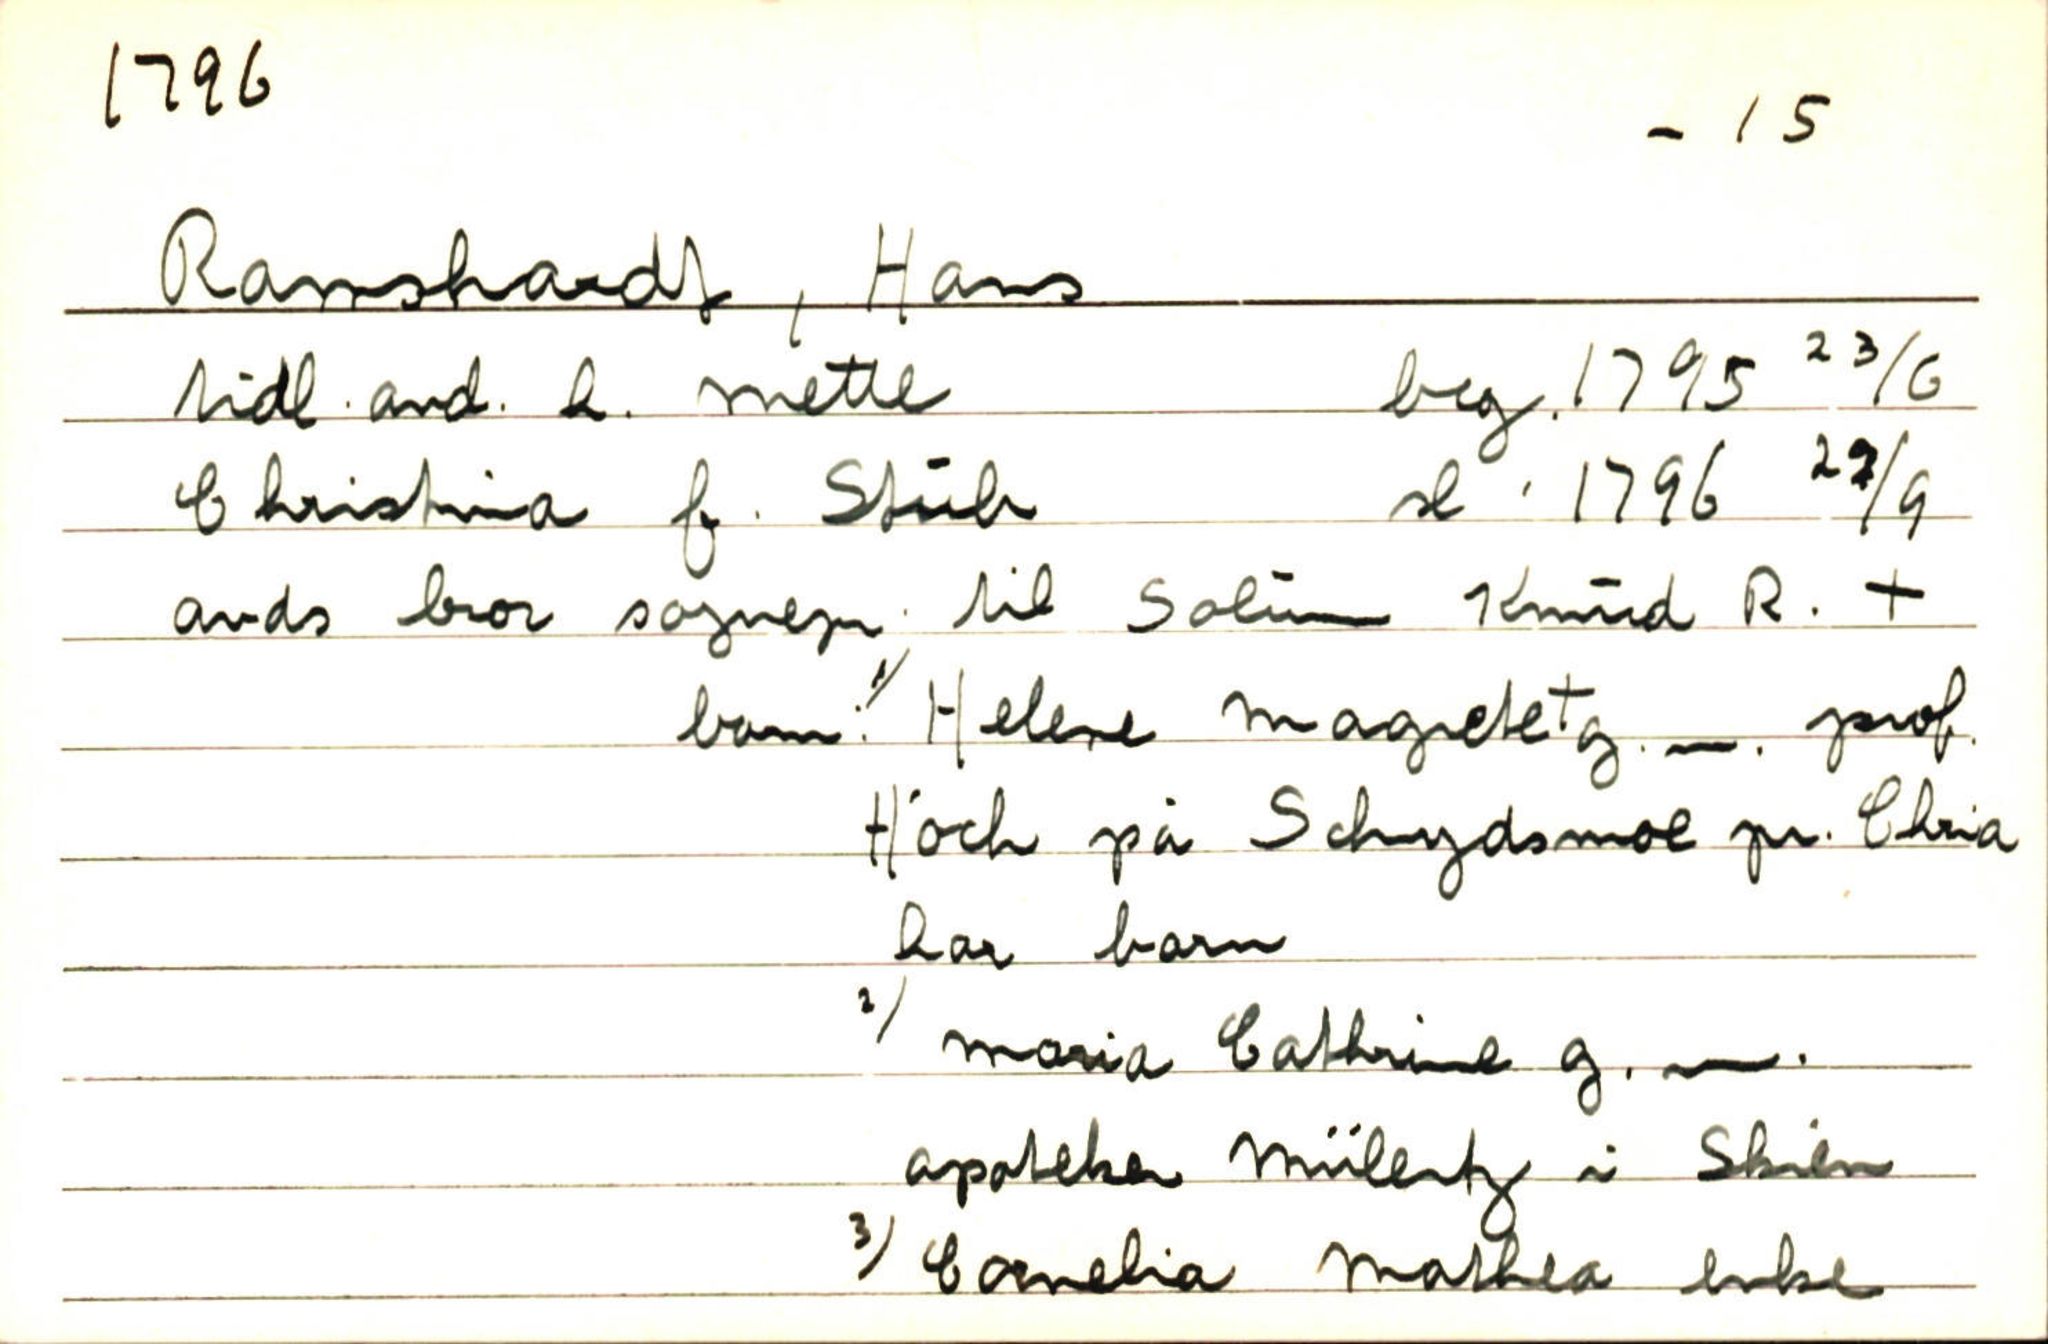 1796
- 15
Ramshardt, Hans
tidl. avd. h. Mette beg. 1795 23/6
Christina f. Stub sl. 1796 22/9
avds bror sognepr. til Solum Knud R. +
barn: 1/ Helene Magrete + g. —. prof.
Höch på Schydsmoe pr. Chria
har barn
2/ Maria Cathrine g. —.
apoteker Mülertz i Skien
3/ Cornelia Mathea enke